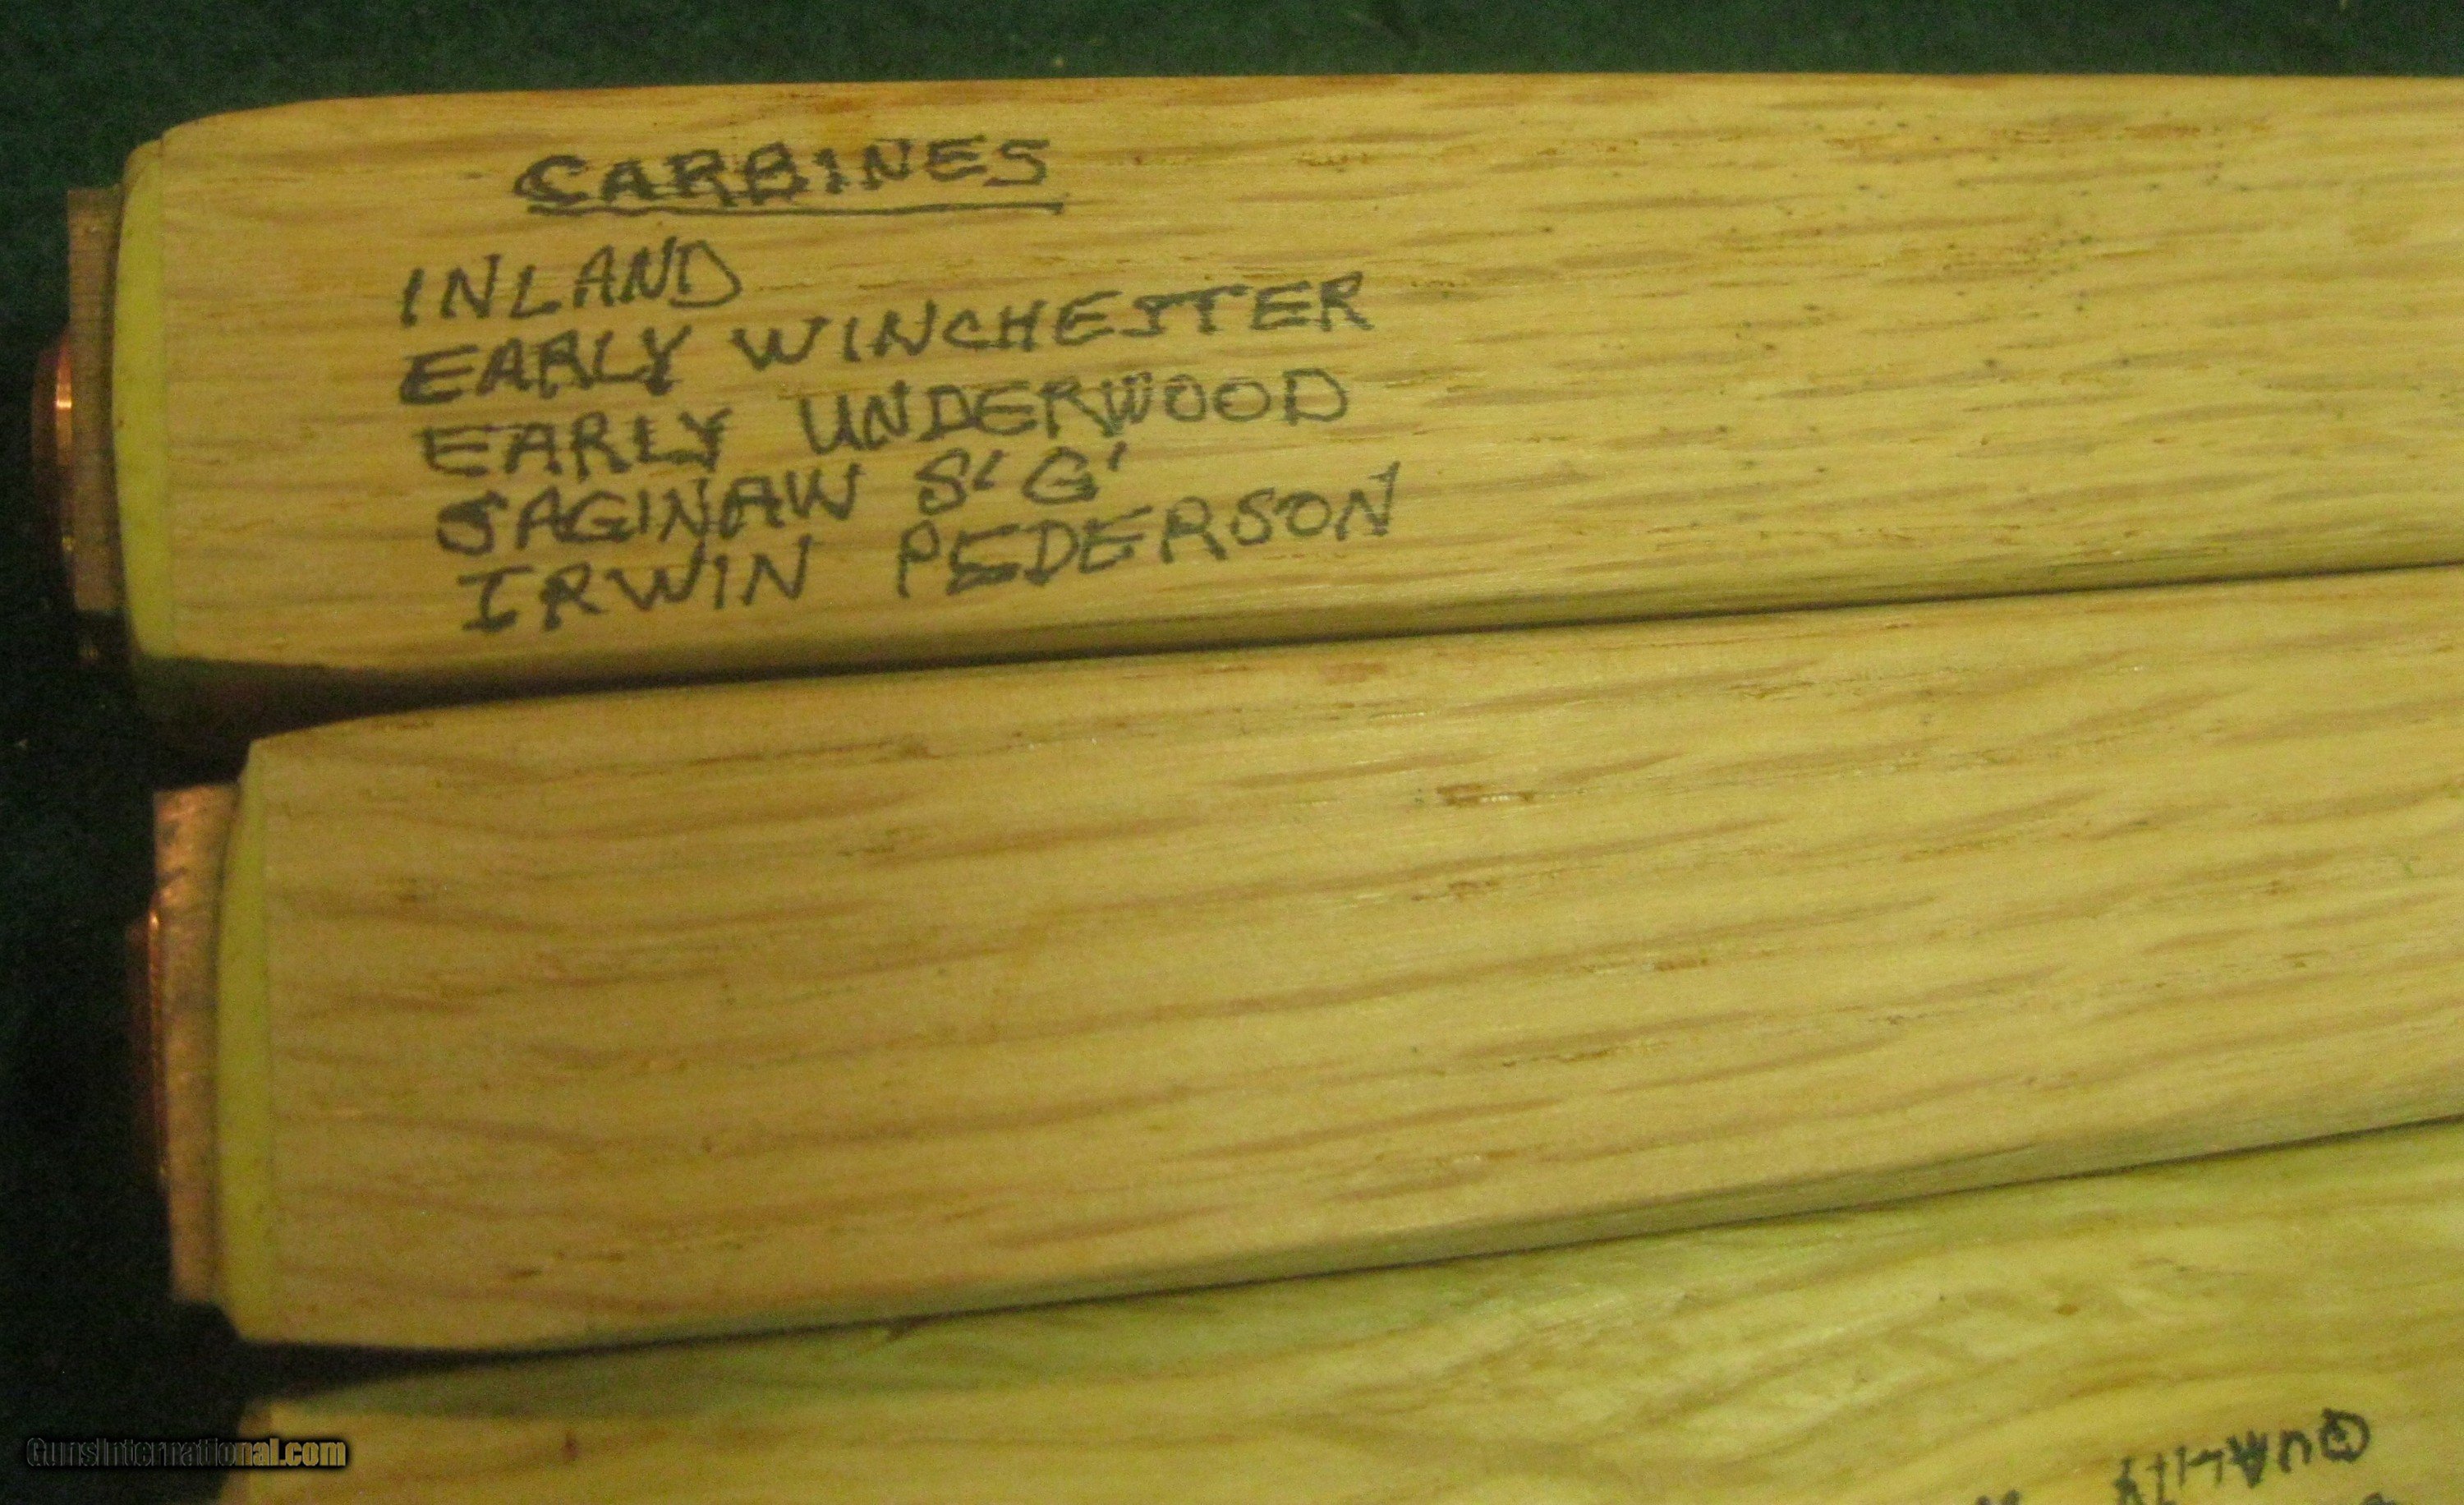 CARBINES
INLAND
EARLY WINCHESTER
EARLY UNDERWOOD
SAGINAW S'G'
IRWIN PEDERSON
QUALITY
GunsInternational.com